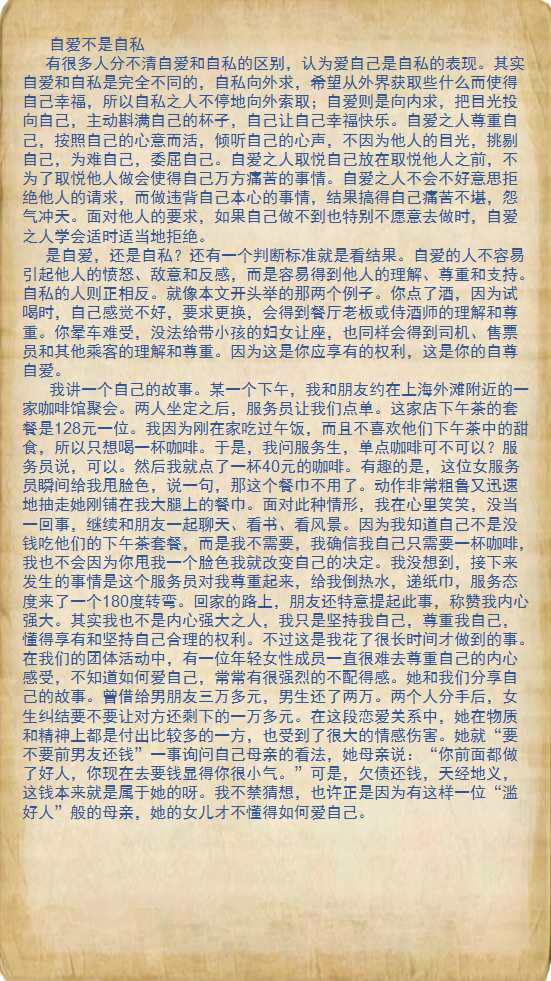 自爱不是自私
有很多人分不清自爱和自私的区别，认为爱自己是自私的表现。其实
自爱和自私是完全不同的，自私向外求，希望从外界获取些什么而使得
自己幸福，所以自私之人不停地向外索取；自爱则是向内求，把目光投
向自己，主动斟满自己的杯子，自己让自己幸福快乐。自爱之人尊重自
己，按照自己的心意而活，倾听自己的心声，不因为他人的目光，挑剔
自己，为难自己，委屈自己。自爱之人取悦自己放在取悦他人之前，不
为了取悦他人做会使得自己万方痛苦的事情。自爱之人不会不好意思拒
绝他人的请求，而做违背自己本心的事情，结果搞得自己痛苦不堪，怨
气冲天。面对他人的要求，如果自己做不到也特别不愿意去做时，自爱
之人学会适时适当地拒绝。
是自爱，还是自私？还有一个判断标准就是看结果。自爱的人不容易
引起他人的愤怒、敌意和反感，而是容易得到他人的理解、尊重和支持。
自私的人则正相反。就像本文开头举的那两个例子。你点了酒，因为试
喝时，自己感觉不好，要求更换，会得到餐厅老板或侍酒师的理解和尊
重。你晕车难受，没法给带小孩的妇女让座，也同样会得到司机、售票
员和其他乘客的理解和尊重。因为这是你应享有的权利，这是你的自尊
自爱。
我讲一个自己的故事。某一个下午，我和朋友约在上海外滩附近的一
家咖啡馆聚会。两人坐定之后，服务员让我们点单。这家店下午茶的套
餐是128元一位。我因为刚在家吃过午饭，而且不喜欢他们下午茶中的甜
食，所以只想喝一杯咖啡。于是，我问服务生，单点咖啡可不可以？服
务员说，可以。然后我就点了一杯40元的咖啡。有趣的是，这位女服务
员瞬间给我甩脸色，说一句，那这个餐巾不用了。动作非常粗鲁又迅速
地抽走她刚铺在我大腿上的餐巾。面对此种情形，我在心里笑笑，没当
一回事，继续和朋友一起聊天、看书、看风景。因为我知道自己不是没
钱吃他们的下午茶套餐，而是我不需要，我确信我自己只需要一杯咖啡，
我也不会因为你甩我一个脸色我就改变自己的决定。我没想到，接下来
发生的事情是这个服务员对我尊重起来，给我倒热水，递纸巾，服务态
度来了一个180度转弯。回家的路上，朋友还特意提起此事，称赞我内心
强大。其实我也不是内心强大之人，我只是坚持我自己，尊重我自己，
懂得享有和坚持自己合理的权利。不过这是我花了很长时间才做到的事。
在我们的团体活动中，有一位年轻女性成员一直很难去尊重自己的内心
感受，不知道如何爱自己，常常有很强烈的不配得感。她和我们分享自
己的故事。曾借给男朋友三万多元，男生还了两万。两个人分手后，女
生纠结要不要让对方还剩下的一万多元。在这段恋爱关系中，她在物质
和精神上都是付出比较多的一方，也受到了很大的情感伤害。她就“要
不要前男友还钱”一事询问自己母亲的看法，她母亲说：“你前面都做
了好人，你现在去要钱显得你很小气。”可是，欠债还钱，天经地义，
这钱本来就是属于她的呀。我不禁猜想，也许正是因为有这样一位“滥
好人”般的母亲，她的女儿才不懂得如何爱自己。